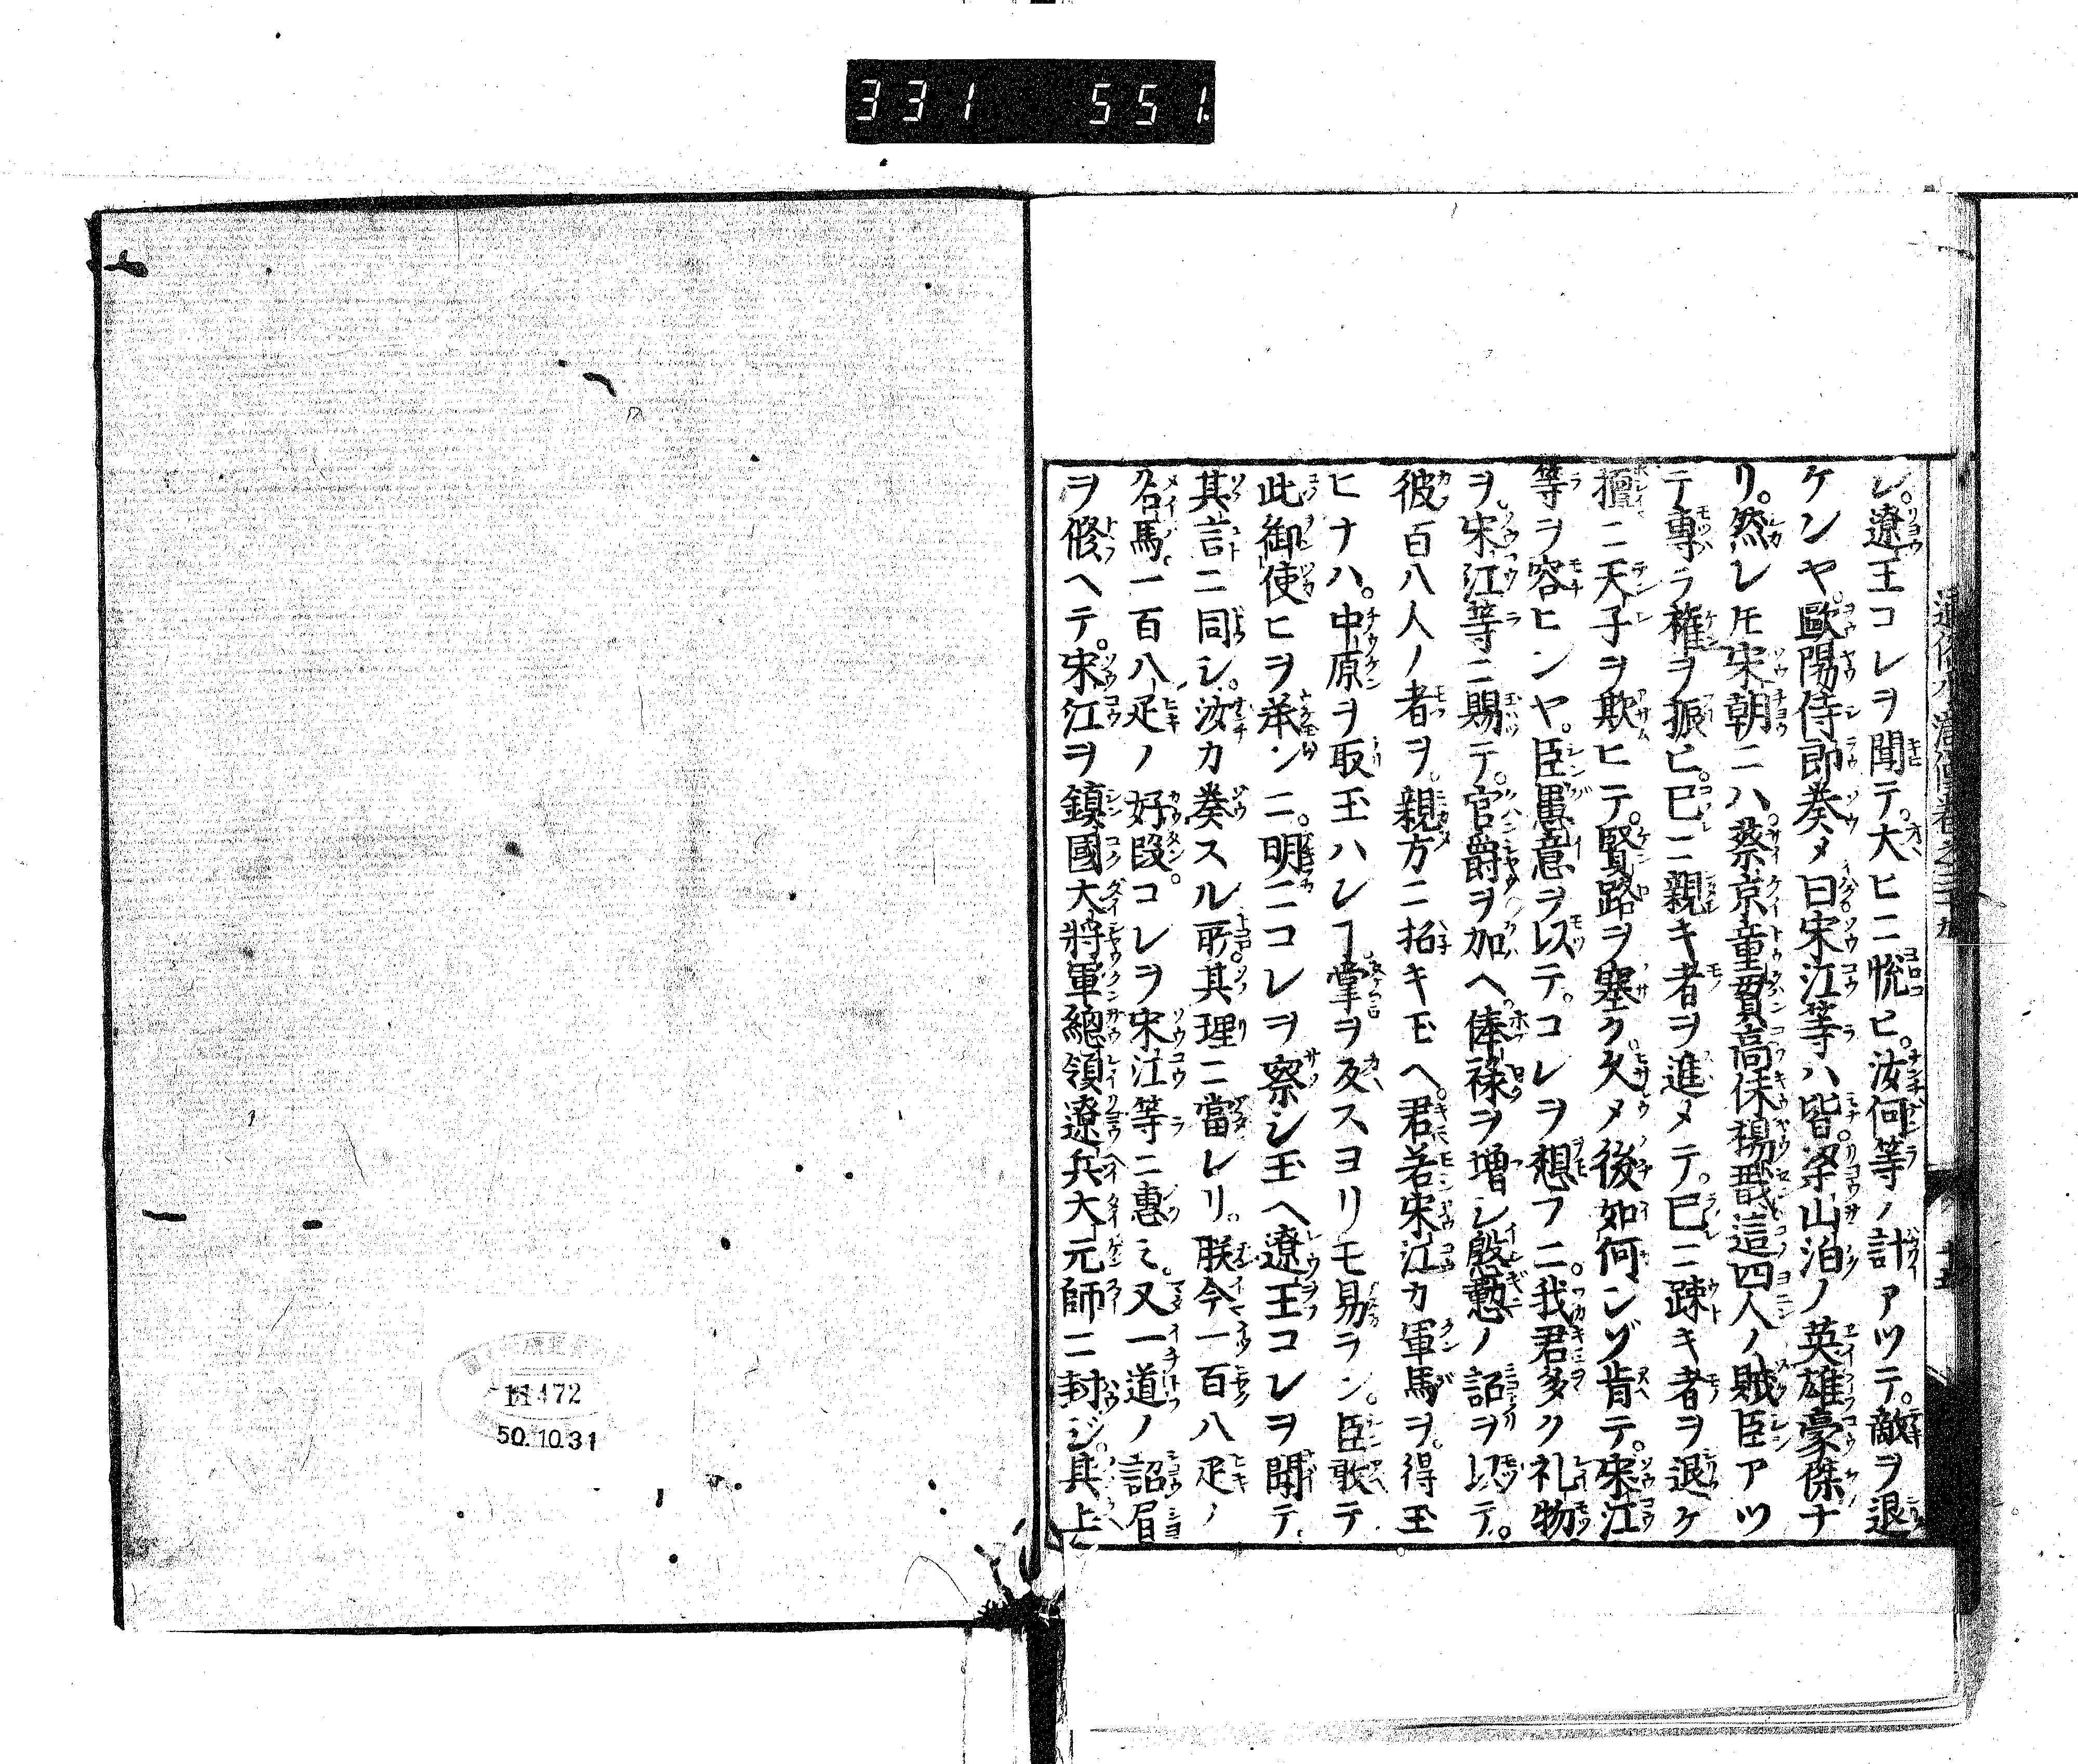 331 551
レ。遼王コレヲ聞テ。大ヒニ悦ヒ。汝何等ノ計アツテ。敵ヲ退
ケンヤ。歐陽侍郎奏メ曰宋江等ハ皆。梁山泊ノ英雄豪傑ナ
リ。然レ𪜈宋朝ニハ。蔡京童貫高俅楊戩這四人ノ賊臣アツ
テ專ラ權ヲ振ヒ。已ニ親キ者ヲ進メテ。已ニ踈キ者ヲ退ケ
擅ニ天子ヲ欺ヒテ。賢路ヲ塞ク久メ後如何ンゾ肯テ。宋江
等ヲ容ヒンヤ。臣愚意ヲ以テ。コレヲ想フニ。我君多ク礼物
ヲ。宋江等ニ賜テ。官爵ヲ加ヘ。俸禄ヲ増シ慇懃ノ詔ヲ以テ。
彼百八人ノ者ヲ。親方ニ招キ玉ヘ。君若宋江カ軍馬ヲ。得玉
ヒナハ。中原ヲ取玉ハレヿ。掌ヲ反スヨリモ易ラン。臣敢テ
此御使ヒヲ承ンニ。明ニコレヲ察シ玉ヘ遼王コレヲ聞テ
其言ニ同シ。汝カ奏スル所。其理ニ當レリ。朕今一百八疋ノ
名馬。一百八疋ノ好段。コレヲ宋江等ニ惠ミ。又一道ノ詔眉
ヲ脩ヘテ。宋江ヲ鎮國大將軍總領遼兵大元師ニ封ジ。其上
11472
50.10.31